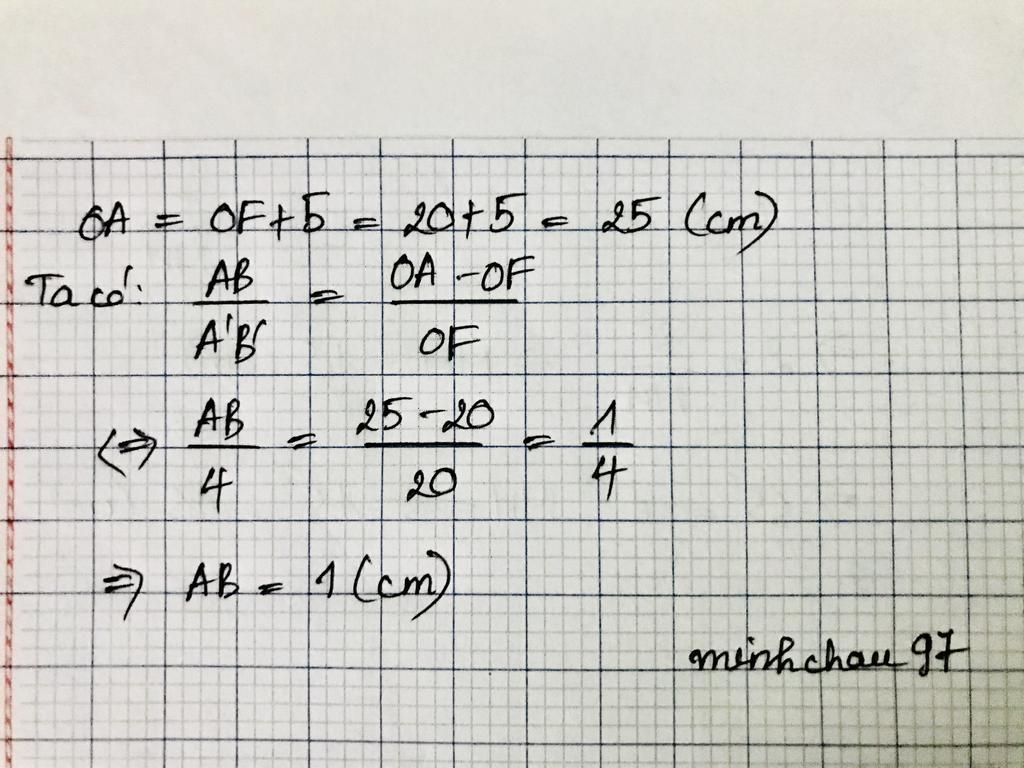 OA = OF + 5 = 20 + 5 = 25 (cm)
Ta có: AB/A'B' = (OA - OF)/OF
<=> AB/4 = (25 - 20)/20 = 1/4
=> AB = 1 (cm)
minhchau 97